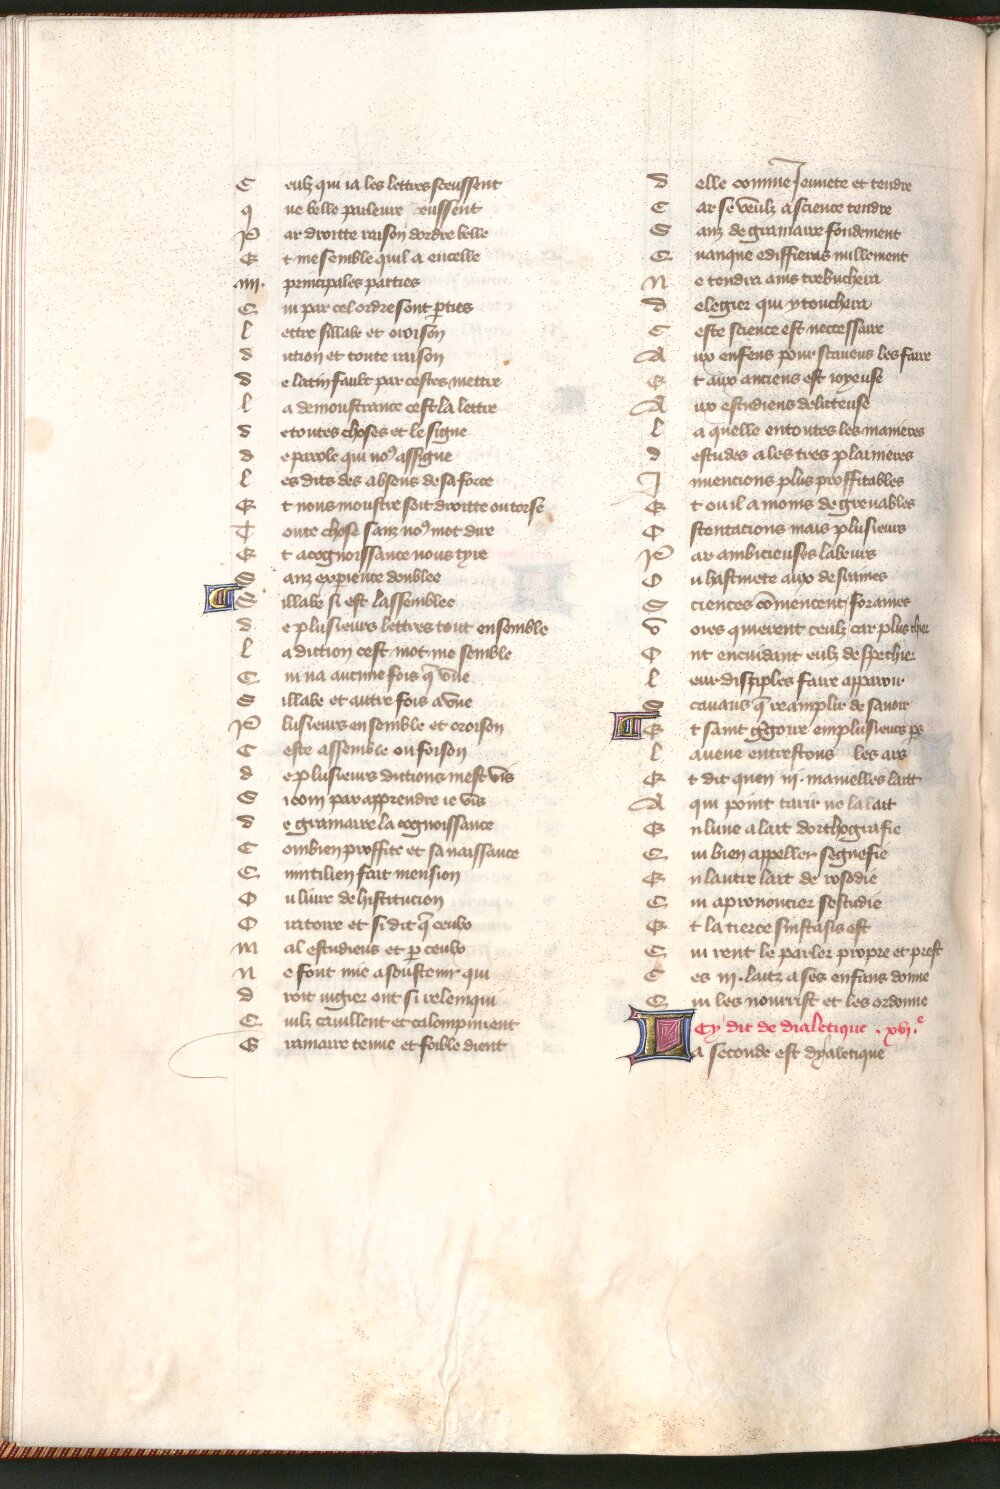 C eulz qui ia les lettres sceussent
q ue belle parleure eussent
P ar droitte raison dordre belle
E t me semble quil a en celle
.iiii. principales parties
C ui par cel ordre sont p̱ties
l ettre sillabe et oroison
d ittion et toute raison
d e latin fault par cestes mettre
l a demoustrance cest la lettre
d e toutes choses et le signe
d e parole qui no⁹ assigne
l es dits des absens de sa force
E t nous moustre soit droitte ou torse
T oute chose sanz no⁹ mot dire
E t a cognoissance nous tyre
S anz experience doublee
S illabe si est lassemblee
d e plusieurs lettres tout ensemble
l a diction cest mot me semble
C ui na aucune fois q̃ vne
S illabe et autre fois avne
P lusieurs ensemble et oroison
C este assemble on foison
d e plusieurs dictions mest vis
S i com par apprendre ie vis
d e gramaire la cognoissance
C ombien proffite et sa naissance
C uintilien fait mension
O u liure de histitucion
O ratoire et si dit q̃ ceulx
m al estudieus et p̱ ceulx
n e font mie a soustenir qui
d roit iugier ont si relemqui
C uilz cauillent et calompnient
G ramaire tenue et foible dient
d elle comme ieunete et tendre
C ar se veulz a science tendre
S anz de gramaire fondement
C uanque ediffieras nullement
N e tendra ains trebuchera
d e legier qui y touchera
C este science est necessaire
A ux enfens pour scauens les faire
E t aux anciens est ioyeuse
A ux estudiens deliteuse
l a quelle en toutes les manieres
d estudes a les tres plainieres
I nuencions plus proffitables
E t ou il a moins de greuables
O stentacions mais plusieurs
P ar ambicieuses labeurs
O u hastiuete aux desirames
S ciences cōmencent foraines
V oies quierent ceulz car plus cher
O nt en cuidant eulz despechier
l eur disciples faire apparoir
S cauans q̃ raamplir de sauoir
E t saint g̃goire em plusieurs ps
l aueue entrestous les ars
E t dit quen iii. mamelles lait
A qui point tarir ne la lait
E n lune a lait dorthografie
C ui bien appeller segnefie
E n lautre lait de rosodie
C ui a prononcier sestudie
E t la tierce sinstasis est
C ui rent le parler propre et prest
C es iii. laitz a ses enfans donne
C ui les nourrist et les ordonne
Cy dit de dialetique .xvi.ᵉ
L a seconde est dyaletique